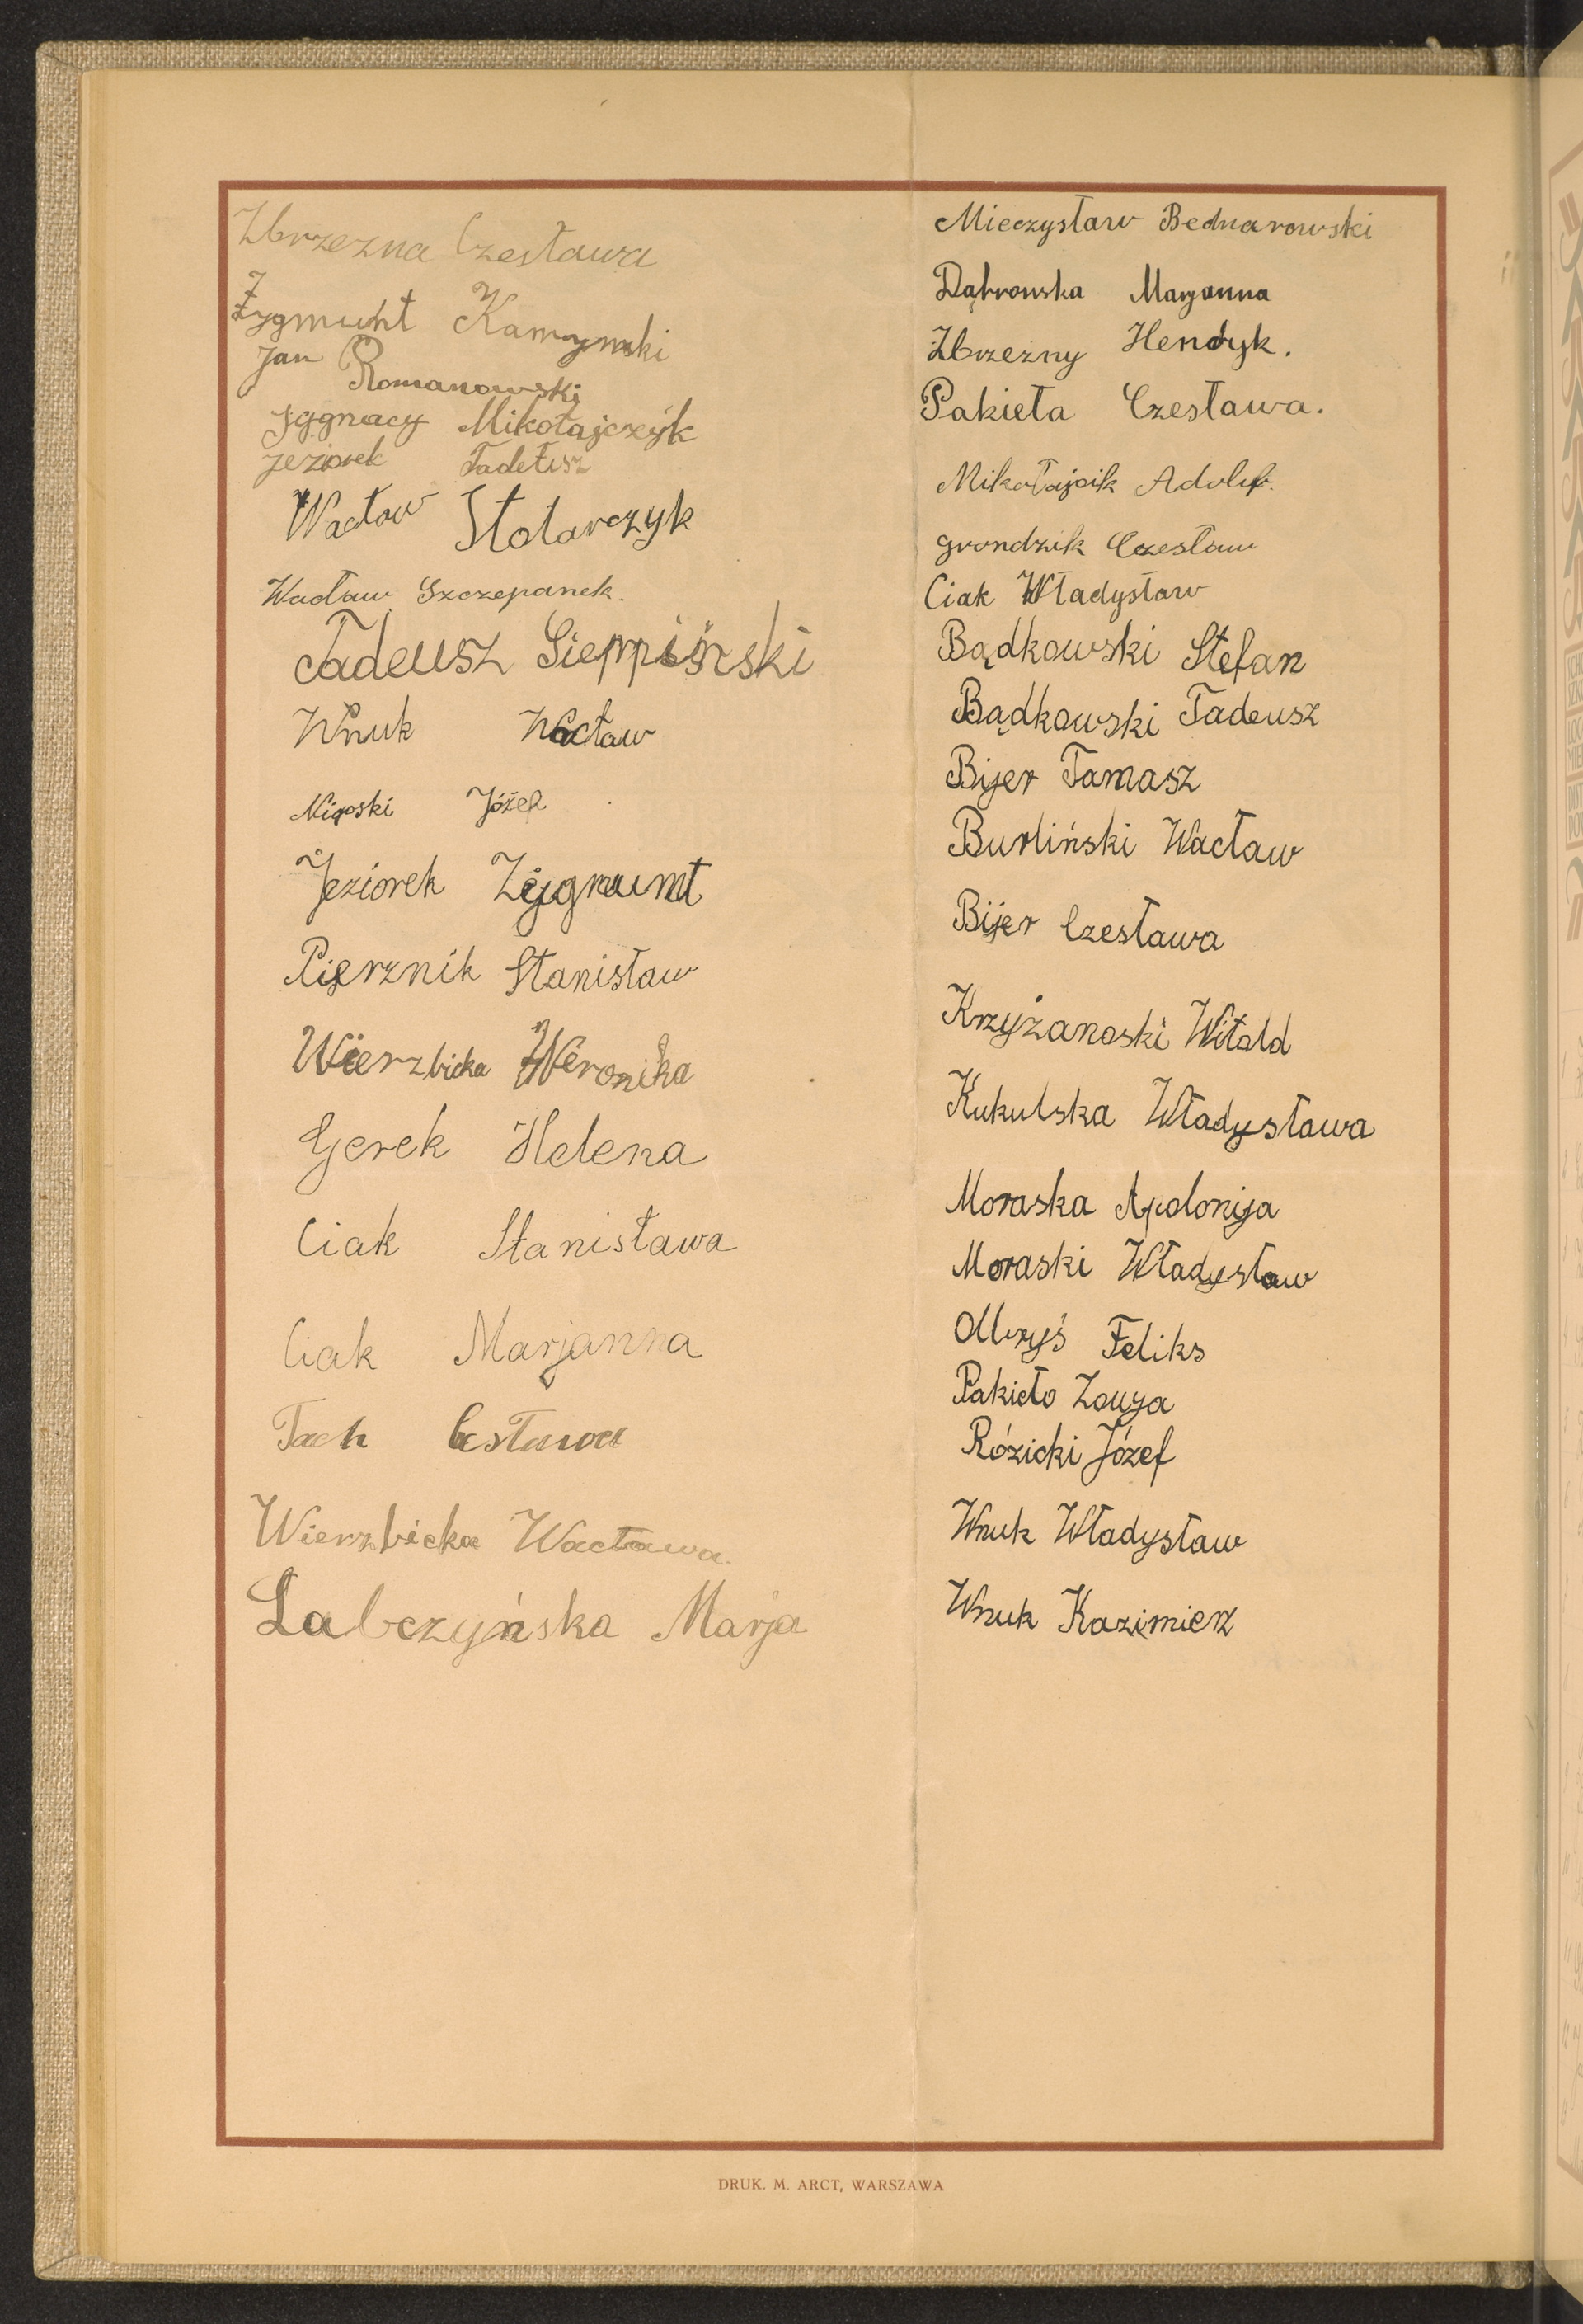 Zbrzezna Czesława
Zygmunt Kamymski
Jan Romanowski
Jggnacy Mikołajczyk
Jeziorek Tadeusz
Wacław Stolarczyk
Wacław Szczepanek.
Tadeusz Sierpiński
Wnuk Wacław
Józef
Jeziorek Zygmumt
Piernik Stanisław
Wierzbicka Weronika
Gerek Helena
Ciak Stanisława
Ciak Marjanna
Tach Cesława
Wierzbicka Wacława.
Labczyńska Marja
Mieczysław Bednarowski
Dąbrowska Maryanna
Zbrzezny Hendyk.
Pakieła Czesława.
Mikołajcik Adolf.
Grondzik Czesław
Ciak Władysław
Bądkowski Stefan
Bądkowski Tadeusz
Bijer Tamasz
Burliński Wacław
Bijer Czesława
Krzyżanoski Witold
Kukulska Władysława
Moraska Apolonija
Moraski Władysław
Olbryś Feliks
Pakieło Zouja
Rózicki Józef
Wnuk Władysław
Wnuk Kazimierz
DRUK. M. ARCT, WARSZAWA